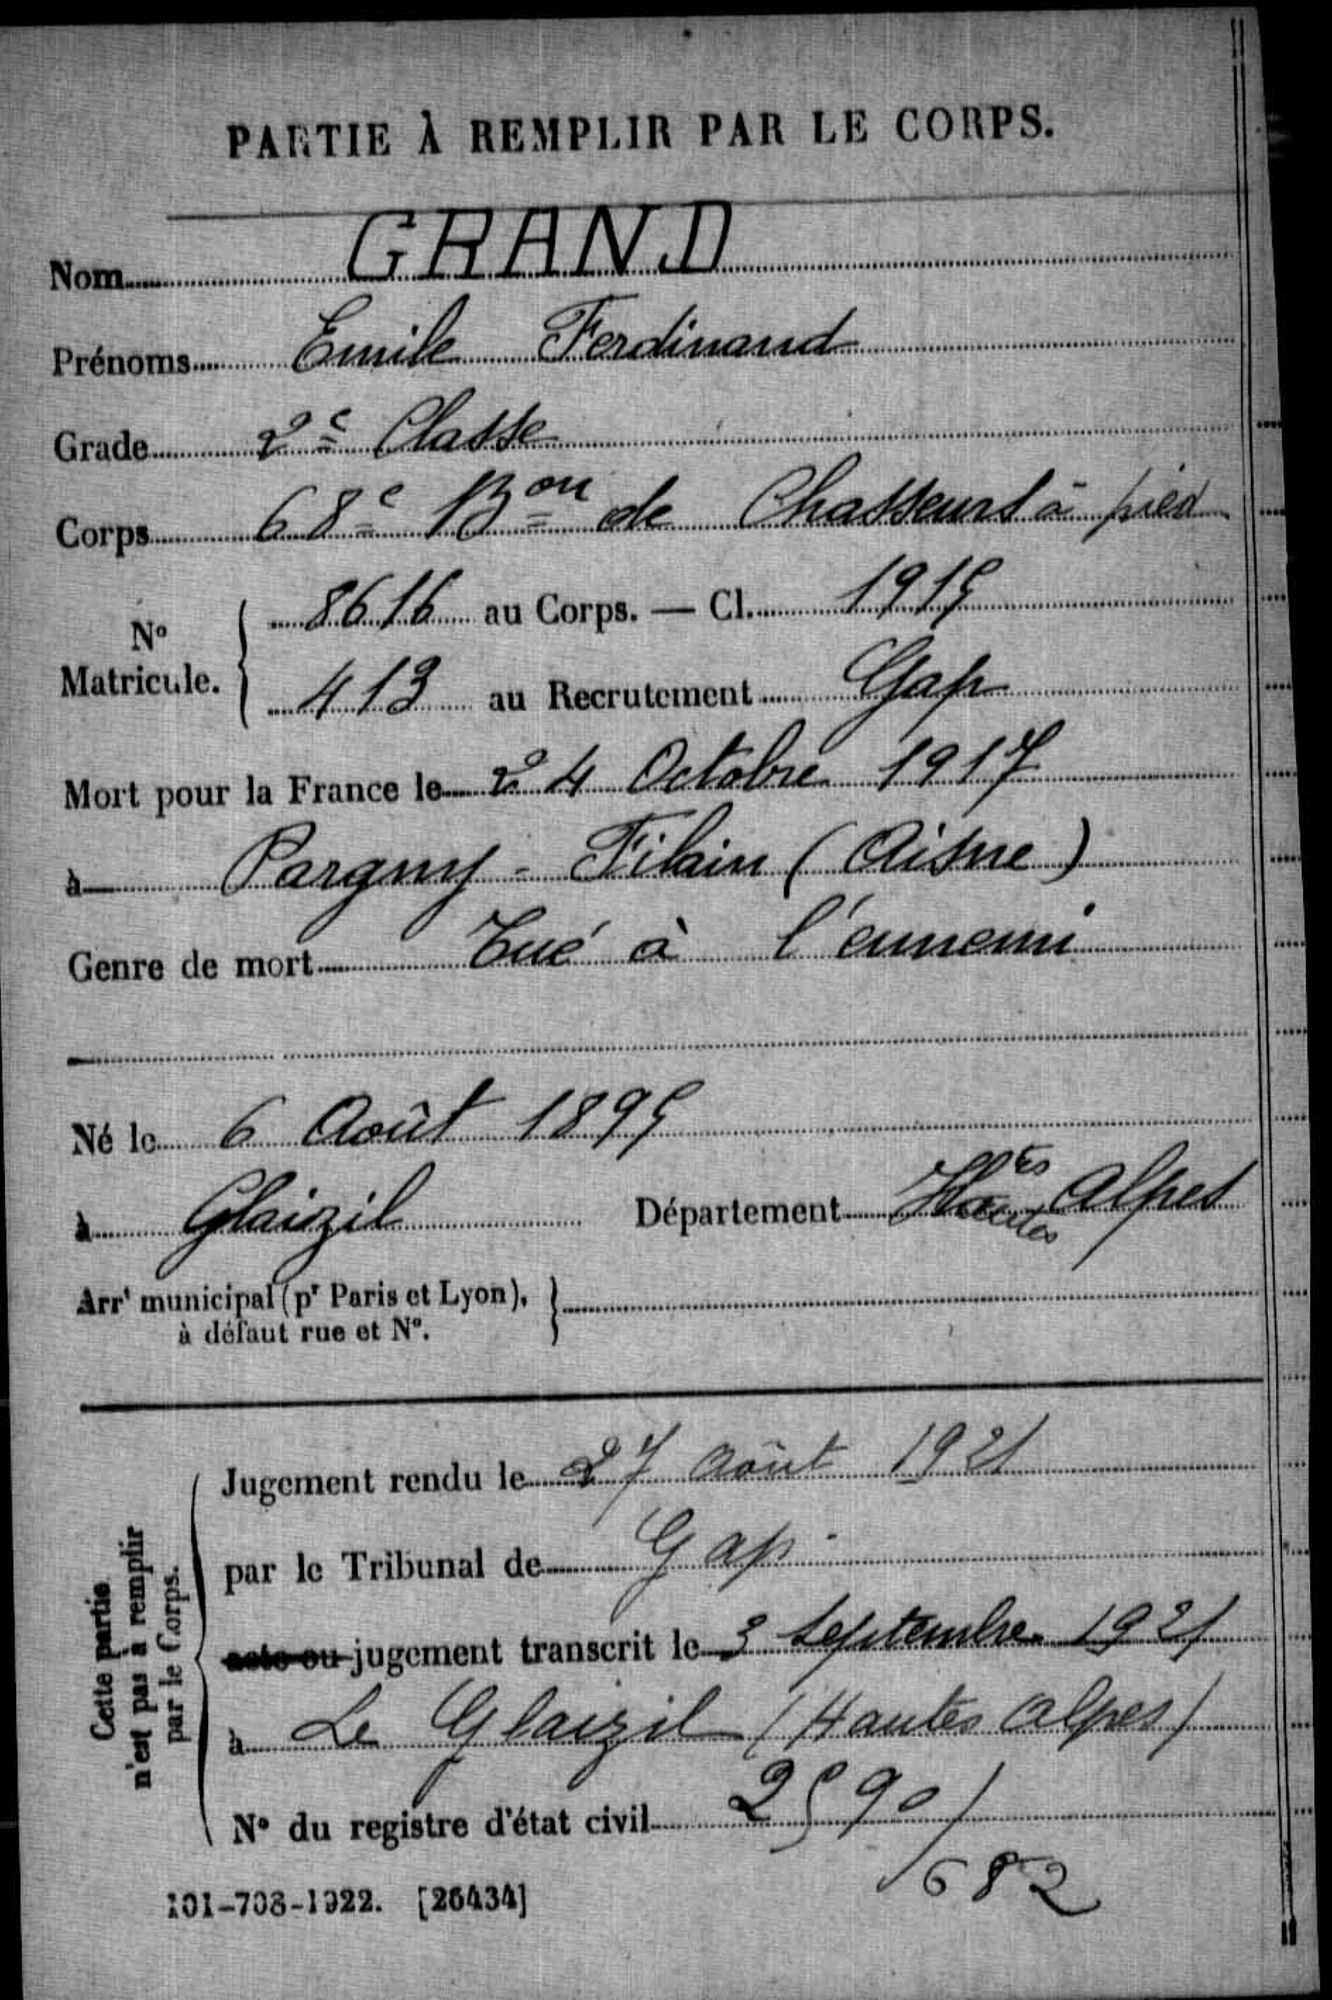 PARTIE À REMPLIR PAR LE CORPS.
Nom GRAND
Prénoms Emile Ferdinand
Grade 2e Classe
Corps 68e Bon de Chasseurs à pied
No Matricule. 8616 au Corps. — Cl. 1915
413 au Recrutement Gap
Mort pour la France le 24 Octobre 1917
à Pargny - Filain (Aisne)
Genre de mort Tué à l'ennemi
Né le 6 Août 1895
à Glaizil Département Htes Hautes Alpes
Arrt municipal (pr Paris et Lyon),
à défaut rue et No.
Cette partie
n'est pas à remplir
par le Corps.
Jugement rendu le 27 août 1921
par le Tribunal de Gap
acte ou jugement transcrit le 3 Septembre 1921
à Le Glaizil (Hautes Alpes)
No du registre d'état civil 2590/
682
101-708-1922. [26434]